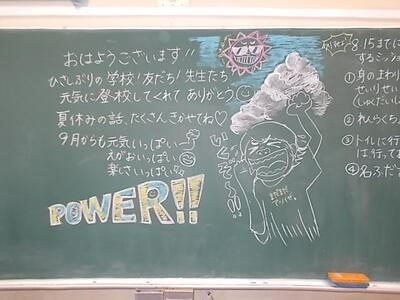 おはようございます!!
ひさしぶりの学校!友だち!先生たち
元気に登校してくれて ありがとう
夏休みの話、たくさんきかせてね♡
9月からも元気いっぱい
えがおいっぱい
楽しさいっぱい
POWER!!
8:15までに
するミッション
①身のまわり
せいりせい
②れんらく
③トイレに行
は行って
④名ふだ